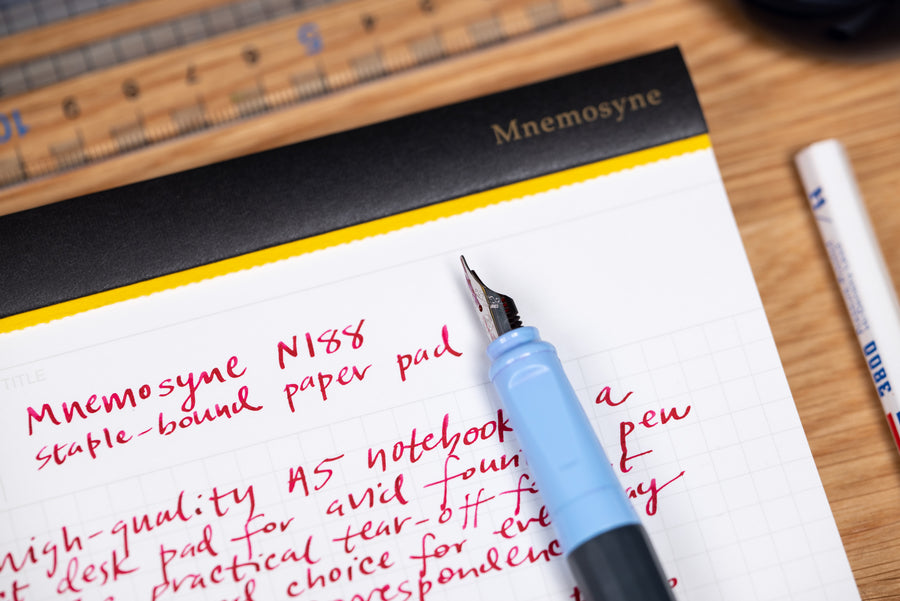 5
10
Mnemosyne
TITLE
Mnemosyne N188
staple-bound paper pad
high-quality A5 notebook a
desk pad for avid pen
practical tear-off
choice for